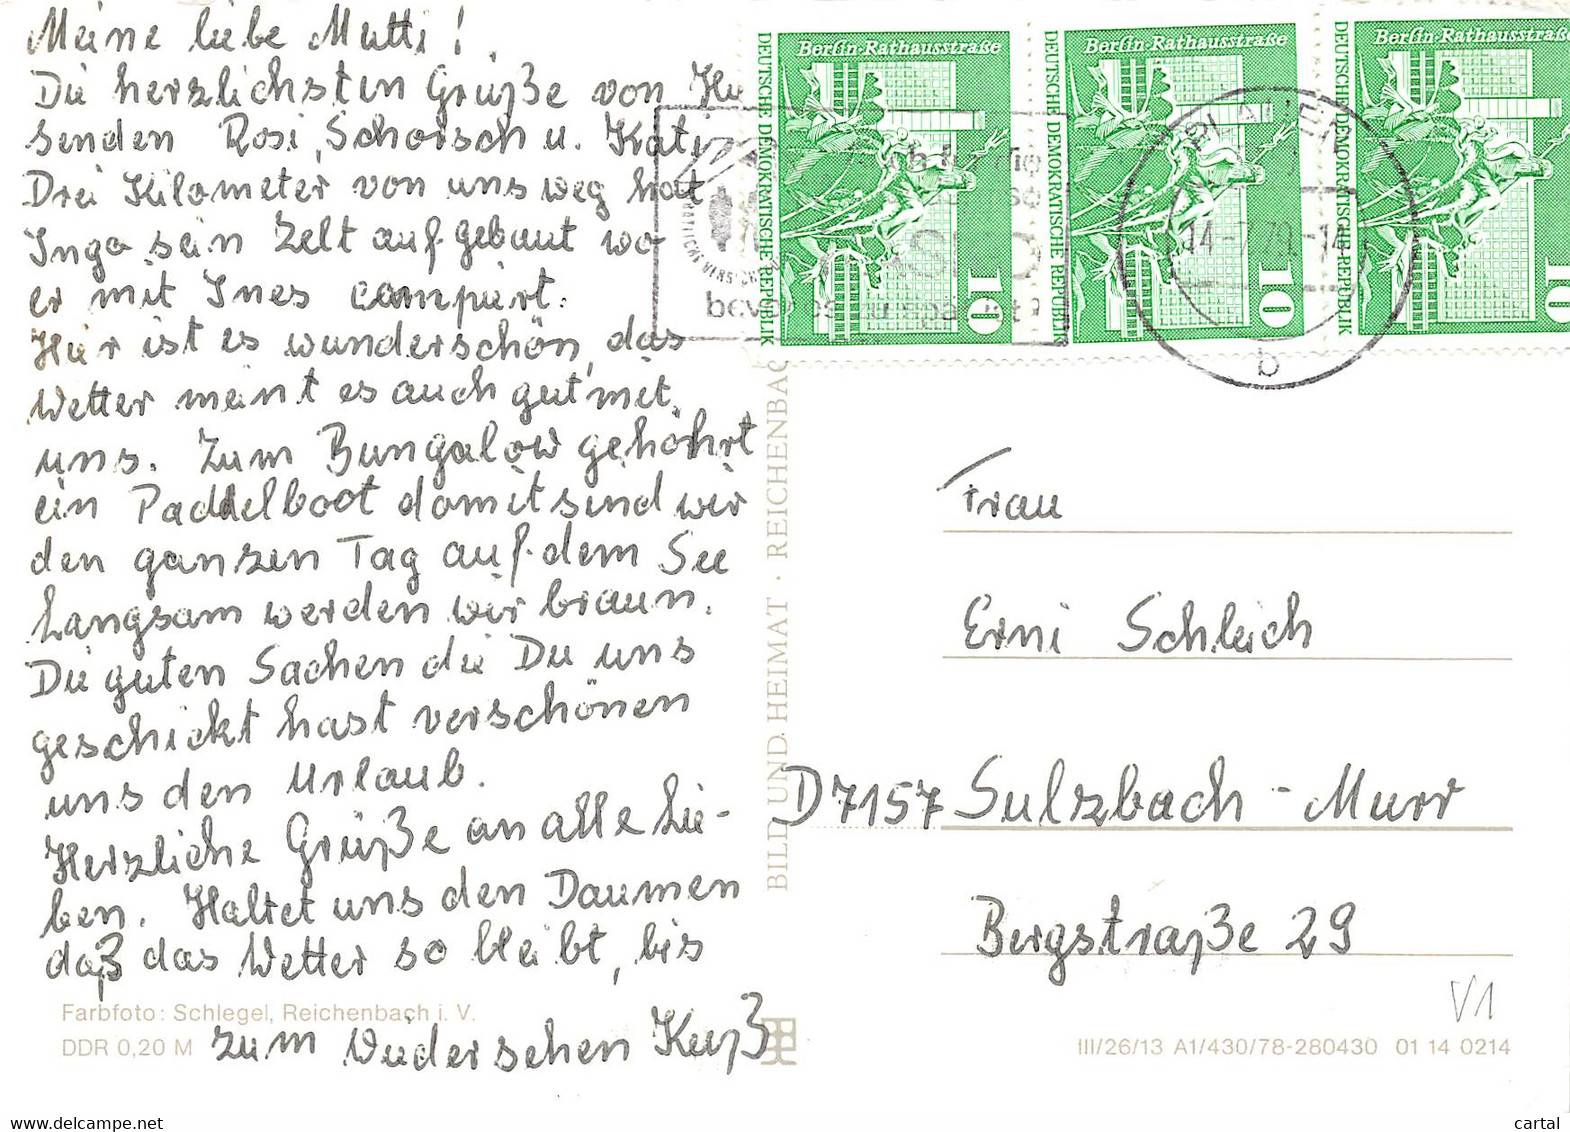 Meine liebe Mutti!
Die herzlichsten Grüße von Hir
senden Rosi, Schorsch u. Kati
Drei Kilometer von uns weg hat
Ingo sein Zelt auf gebaut wo
er mit Ines campiert.
Hier ist es wunderschön, das
Wetter meint es auch gut mit
uns. Zum Bungalow gehöhrt
ein Paddelboot damit send wir
den ganzen Tag auf dem See
Langsam werden wir braun.
Die guten Sachen die Du uns
geschickt hast verschönen
uns den Urlaub.
Herzliche Grüße an alle Lie-
ben. Haltet uns den Daumen
daß das Wetter so bleibt, bis
zum Wiedersehen Kuß
Farbfoto: Schlegel, Reichenbach i. V.
DDR 0,20 M
BILD UND HEIMAT · REICHENBAC
Berlin-Rathausstraße
DEUTSCHE DEMOKRATISCHE REPUBLIK
10
Berlin-Rathausstraße
DEUTSCHE DEMOKRATISCHE REPUBLIK
10
Berlin-Rathausstraße
DEUTSCHE DEMOKRATISCHE REPUBLIK
10
bevor es zu spät ist!
PLAUEN
b
Frau
Erni Schleich
D7157 Sulzbach - Murr
Bergstraße 29
V1
III/26/13 A1/430/78-280430 01 14 0214
www.delcampe.net
cartal